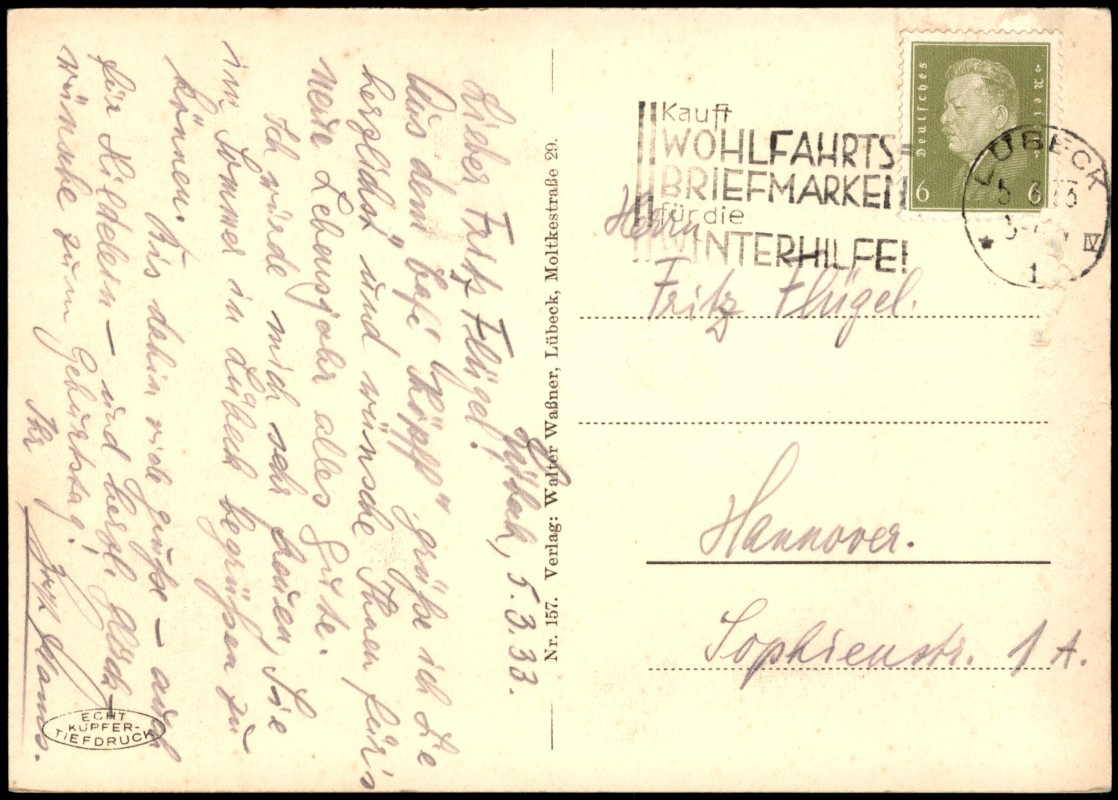 Lübeck, 5.3.33.
Lieber Fritz Flügel!
Aus dem "Café Köpff" grüße ich Sie
herzlichst und wünsche Ihnen für's
neue Lebensjahr alles Gute.
Ich würde mich sehr freuen, Sie
im Sommer in Lübeck begrüßen zu
können. Bis dahin viele Grüße – auch
für Hildelein – und herzl. Glück-
wünsche zum Geburtstag!
Ihr
Nr. 157. Verlag: Walter Waßner, Lübeck, Moltkestraße 29.
ECHT
KUPFER-
TIEFDRUCK
Kauft
WOHLFAHRTS-
BRIEFMARKEN
für die
WINTERHILFE!
Deutsches Reich
6 6
LÜBECK
IV
1
Herrn
Fritz Flügel.
Hannover.
Sophienstr. 1 A.